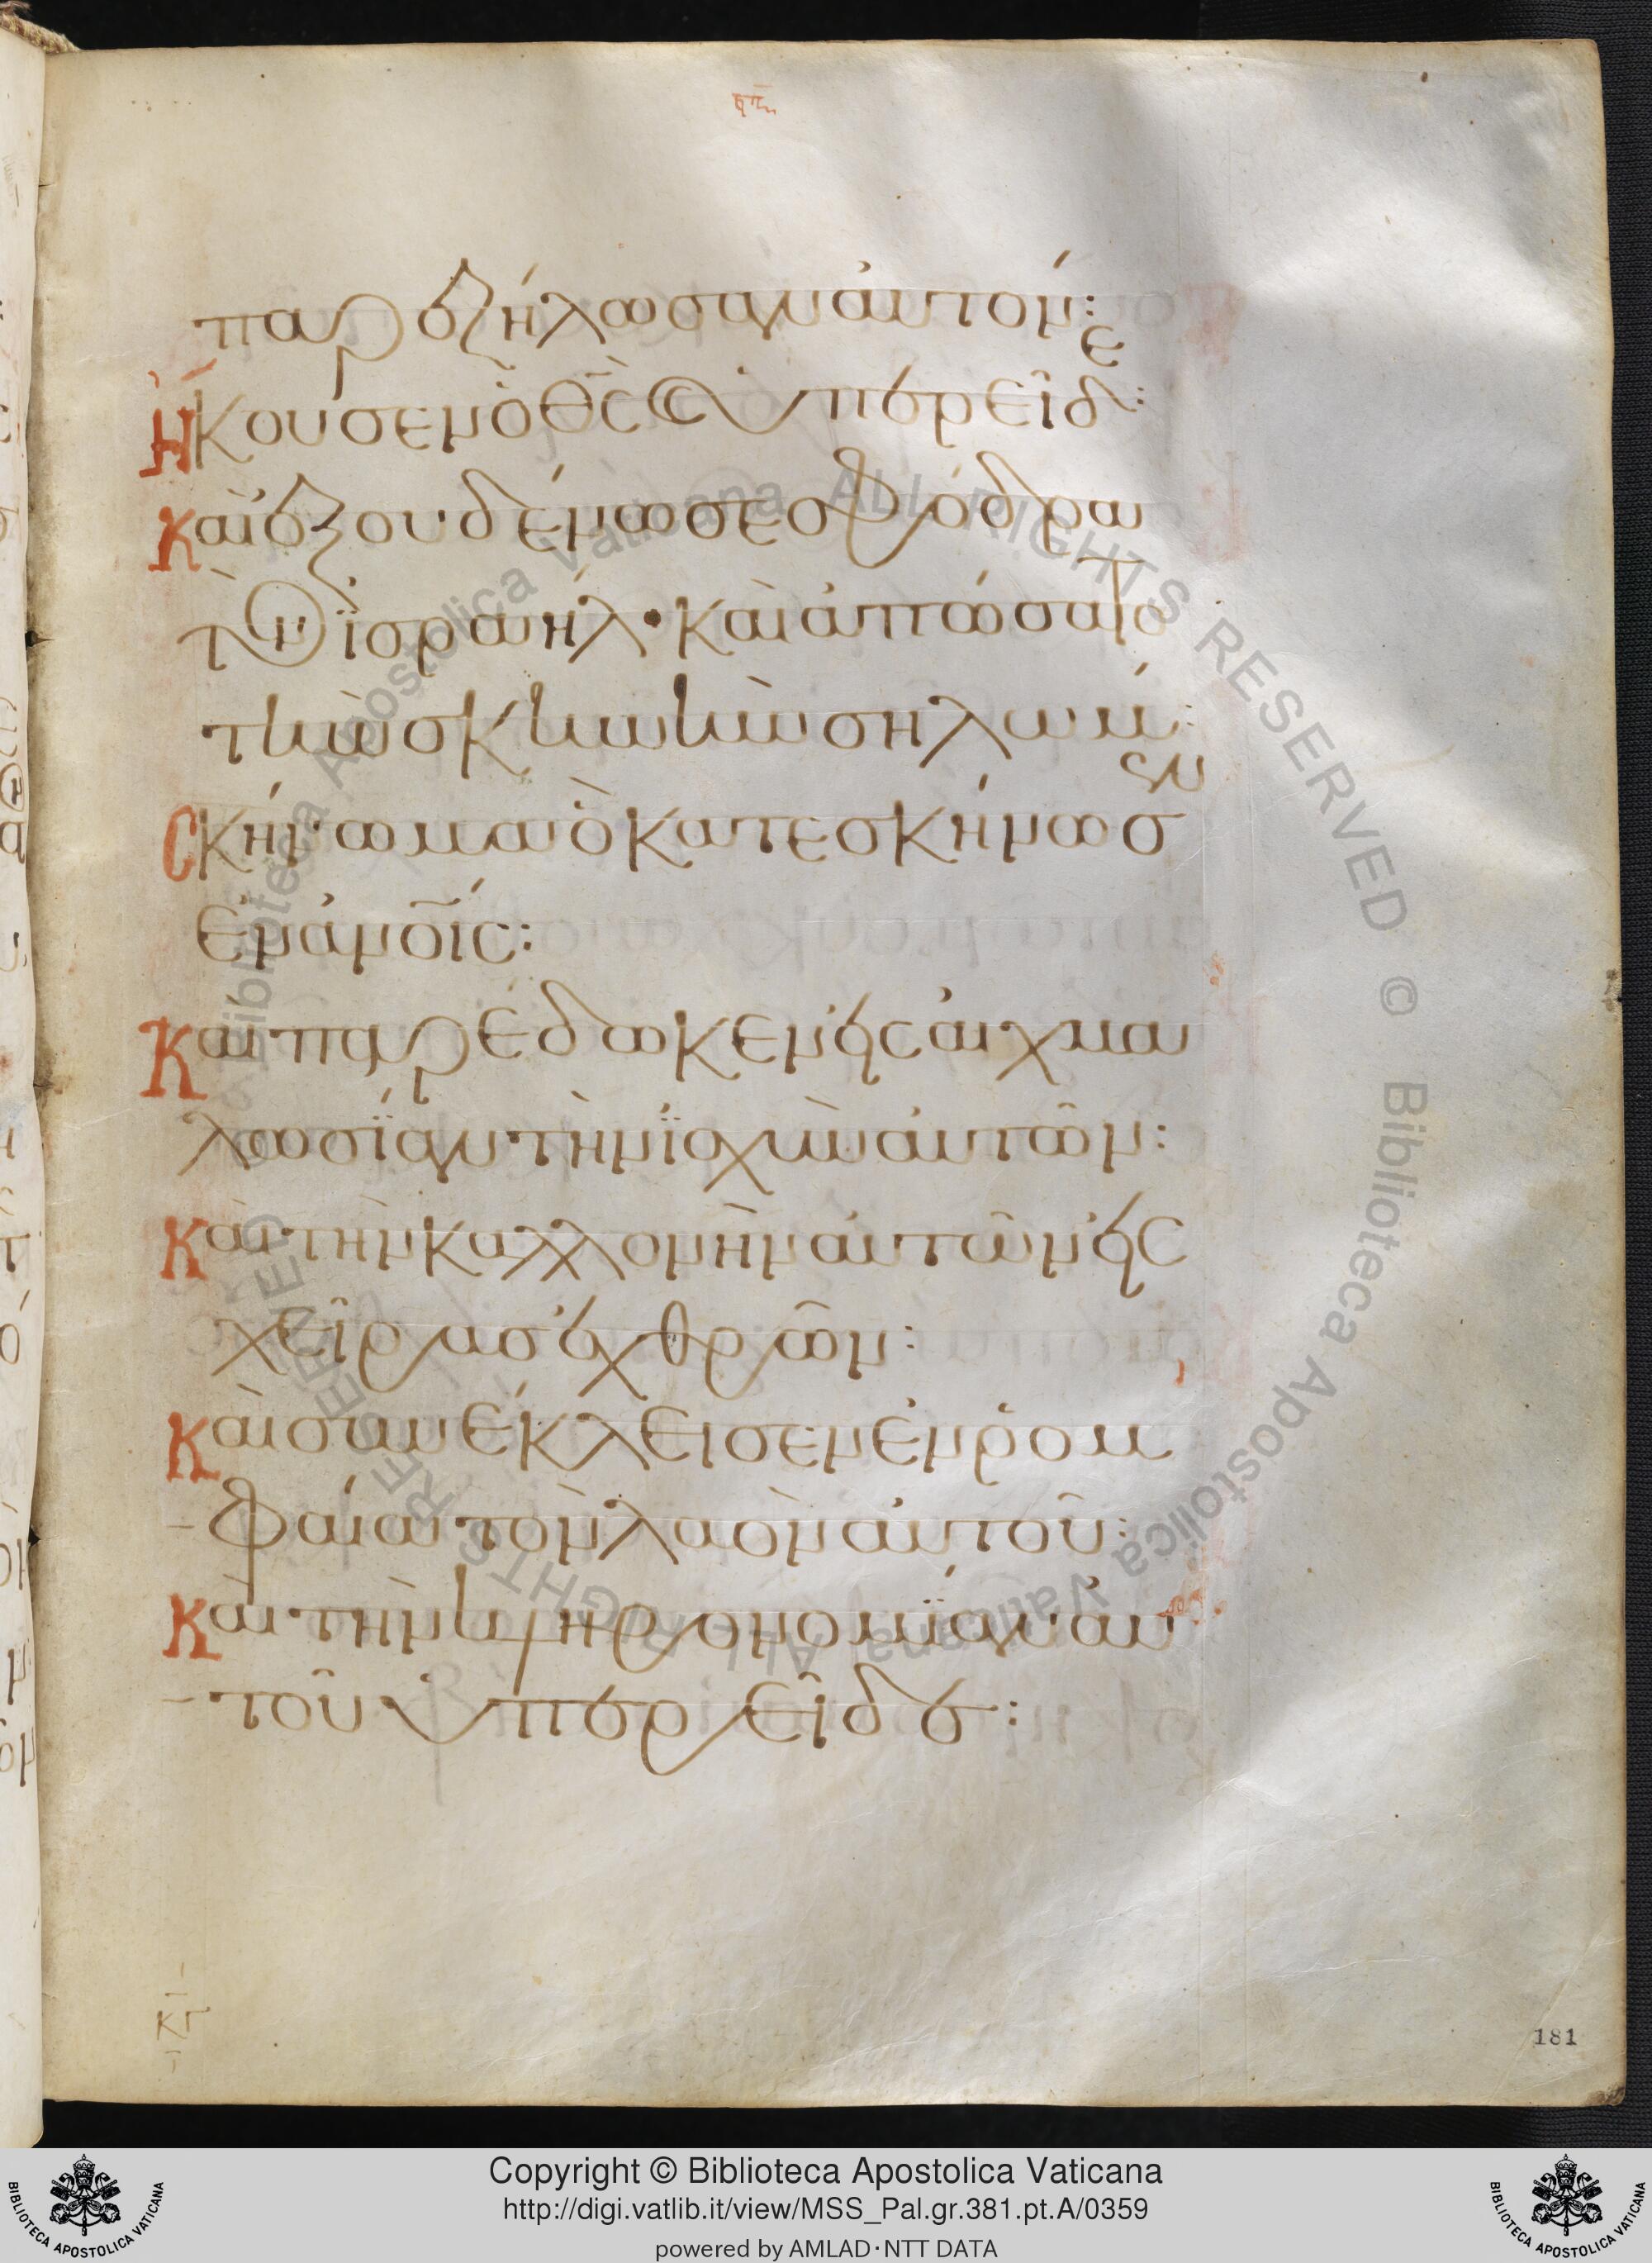 παρεζήλωσαν αὐτόν:
Ἤκουσεν ὁ θ̅ς̅ καὶ ὑπερεῖδε:
Καὶ ἐξουδένωσε σφόδρα
τὸν ἰσραηλ· καὶ ἀπώσατο
τὴν σκηνὴν σηλώμ:
Σκήνωμα ὃ κατεσκήνωσεν
ἐν ἀνο̅ίς:
Καὶ παρέδωκεν εἰς αἰχμα
λωσίαν τὴν ἰσχὺν αὐτῶν:
Καὶ τὴν καλλονὴν αὐτῶν εἰς
χεῖρας ἐχθρῶν:
Καὶ συνέκλεισεν ἐν ῥομ
φαία τὸν λαὸν αὐτοῦ:
Καὶ τὴν κληρονομίαν αὐ
τοῦ ὑπερεῖδε:
κγ
181
Copyright © Biblioteca Apostolica Vaticana
http://digi.vatlib.it/view/MSS_Pal.gr.381.pt.A/0359
powered by AMLAD·NTT DATA
BIBLIOTECA APOSTOLICA VATICANA
BIBLIOTECA APOSTOLICA VATICANA
© Biblioteca Apostolica Vaticana ALL RIGHTS RESERVED © Biblioteca Apostolica Vaticana ALL RIGHTS RESERVED